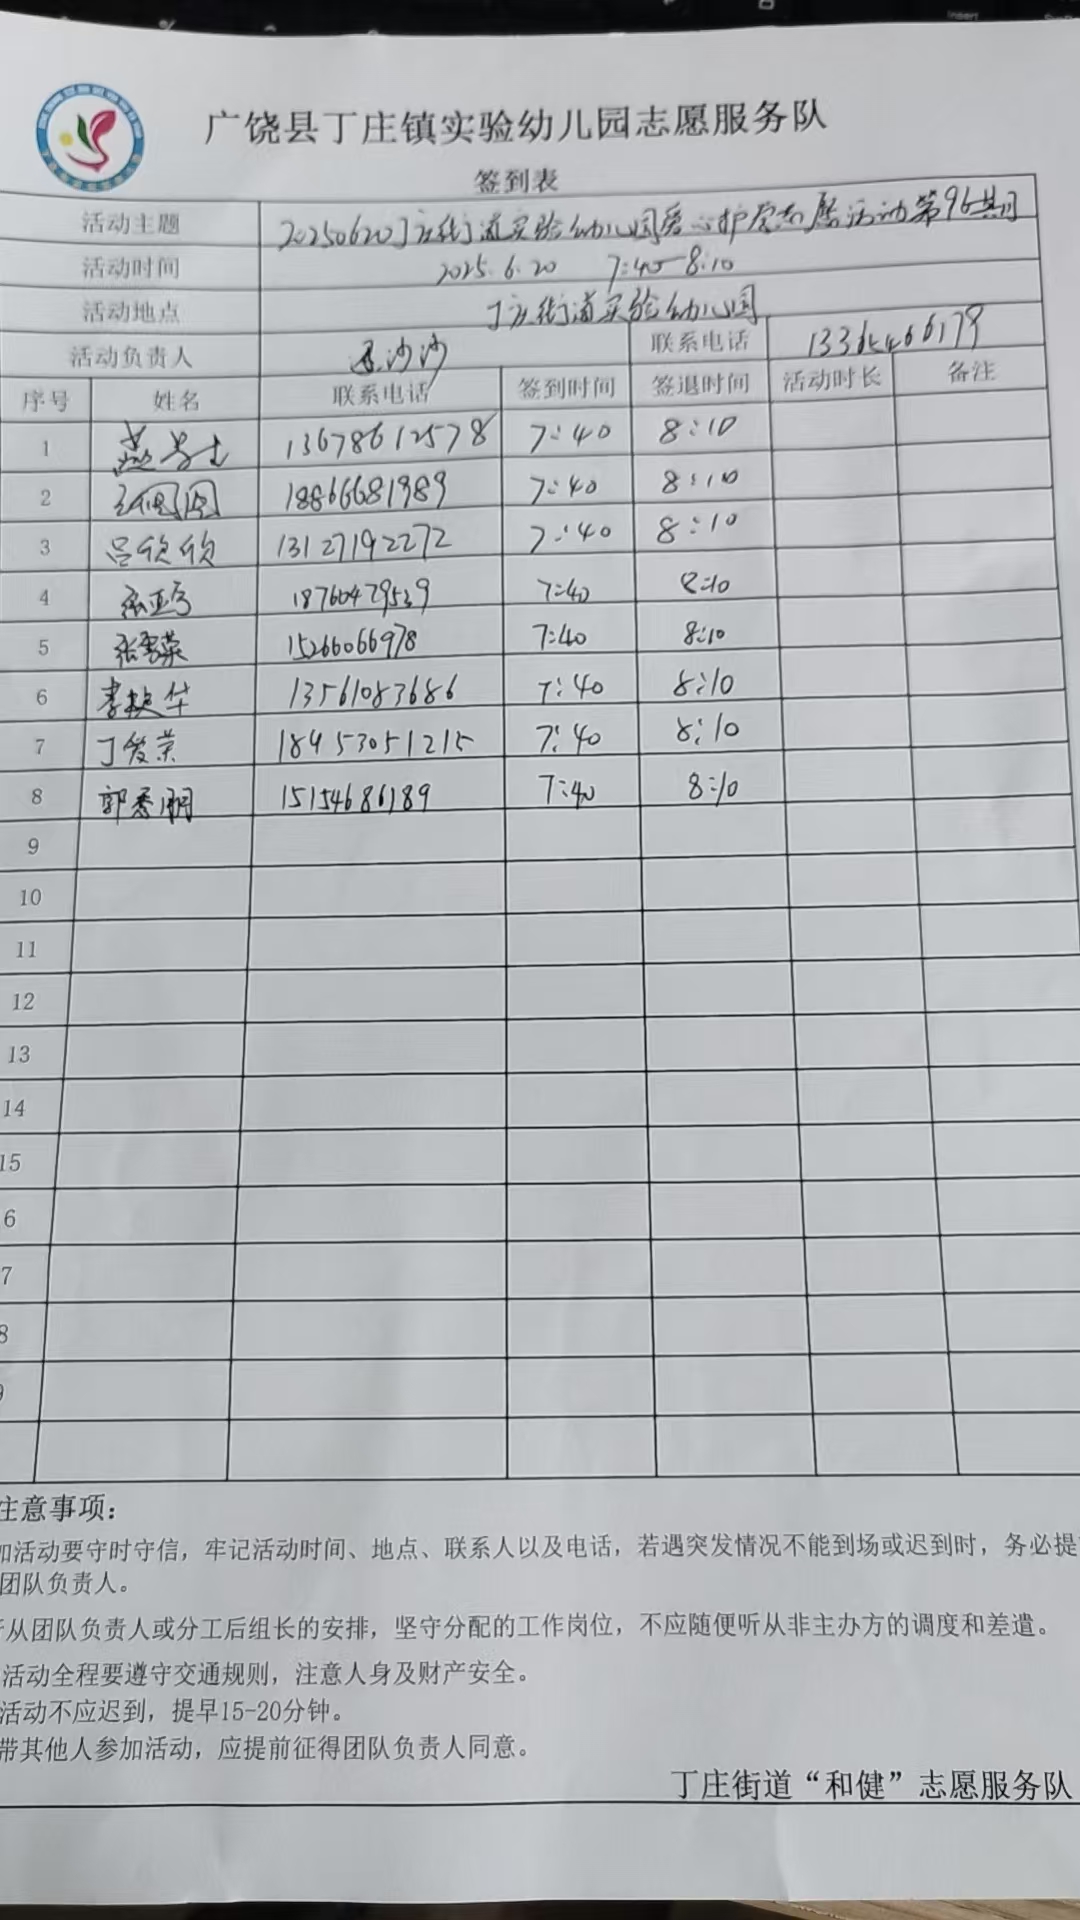 广饶县丁庄镇实验幼儿园志愿服务队
签到表
活动主题 20250620丁庄街道实验幼儿园爱心护学志愿活动第96期
活动时间 2025.6.20 7:40-8:10
活动地点 丁庄街道实验幼儿园
活动负责人 沙沙 联系电话 13365466179
序号 姓名 联系电话 签到时间 签退时间 活动时长 备注
1 燕 13678612578 7:40 8:10
2 18866681989 7:40 8:10
3 吕欣欣 13127192272 7:40 8:10
4 18760479539 7:40 8:10
5 张雪荣 15266066978 7:40 8:10
6 李 华 13561083686 7:40 8:10
7 丁爱荣 18453051215 7:40 8:10
8 郭秀丽 15154686189 7:40 8:10
9
10
11
12
13
14
15
6
7
8
9
注意事项：
加活动要守时守信，牢记活动时间、地点、联系人以及电话，若遇突发情况不能到场或迟到时，务必提
团队负责人。
从团队负责人或分工后组长的安排，坚守分配的工作岗位，不应随便听从非主办方的调度和差遣。
活动全程要遵守交通规则，注意人身及财产安全。
活动不应迟到，提早15-20分钟。
带其他人参加活动，应提前征得团队负责人同意。
丁庄街道“和健”志愿服务队